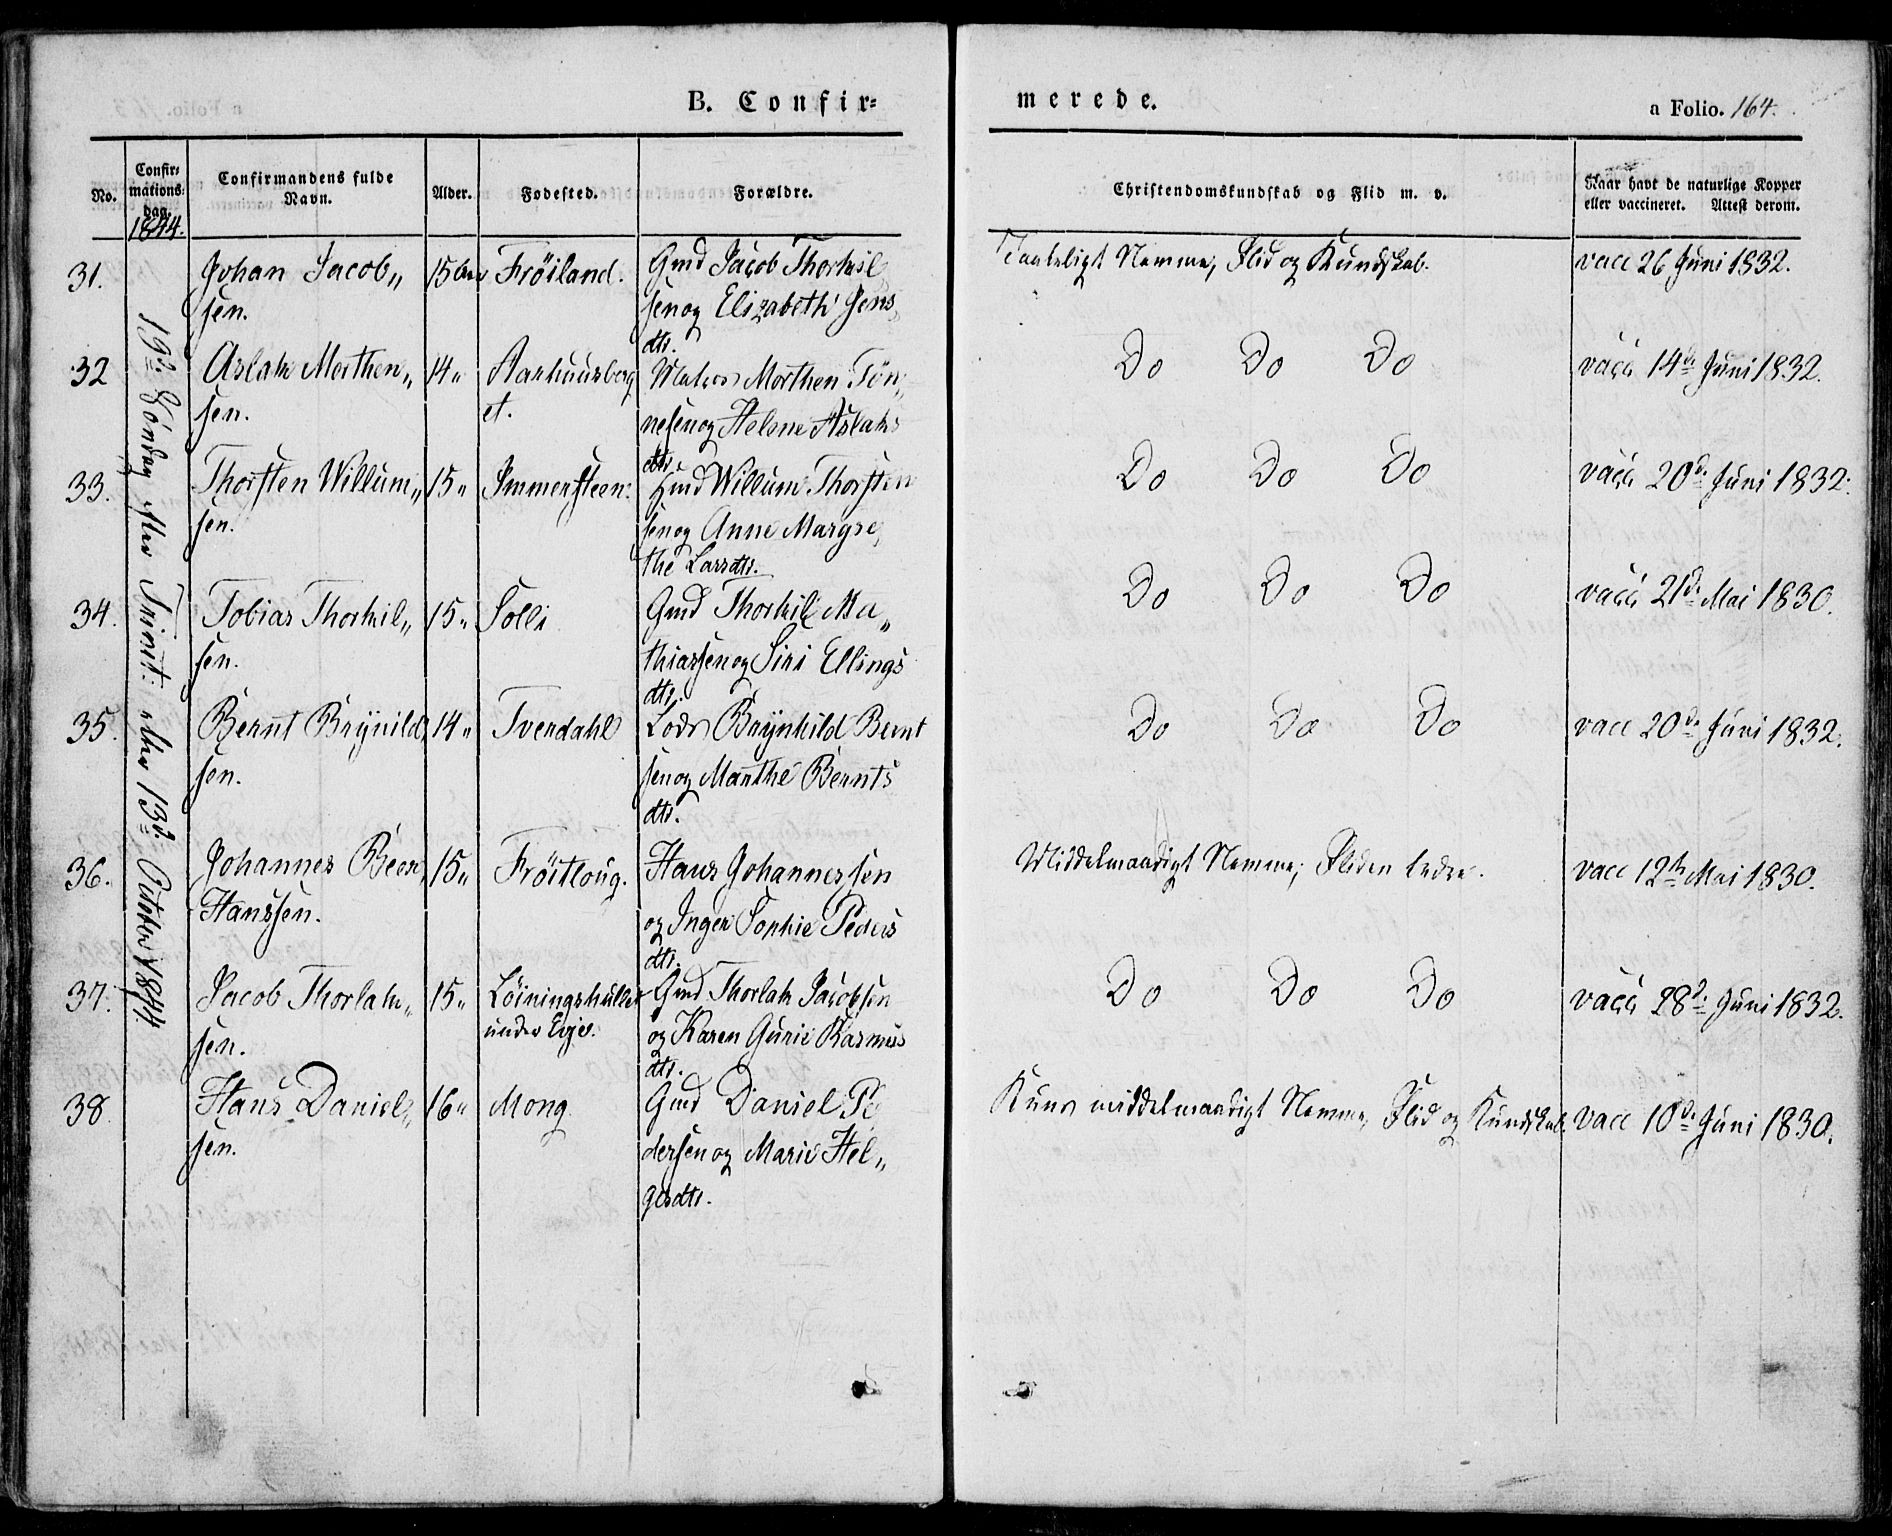 B. Confir=
merede.
a Folio. 164.
No.
Confir=
mations=
dag.
1844.
Confirmandens fulde
Navn.
Alder.
Fødested.
Forældre.
Christendomskundskab og Flid m. v.
Naar havt de naturlige Kopper
eller vaccineret. Attest derom.
19de Søndag efter Trinit: eller 13d: October 1844.
31.
Johan Jacob„
sen.
15
Fröiland.
Gmd Jacob Thorkil
sen og Elizabeth Jens
dtr.
Taaleligt Nemme, Flid og Kundskab.
vacc 26 Juni 1832.
32
Aslak Morthen„
sen.
14„
Aarhuusberg
et.
Matros Morthen Tön„
nesen og Helene Aslaks
dtr.
Do Do Do
vacc 14de Juni 1832.
33.
Thorsten Willum„
sen.
15„
Immersteen.
Willum Thorsten
sen og Anne Margre„
the Larsdtr.
Do Do Do
vacc 20d: Juni 1832.
34.
Tobias Thorkil„
sen.
15„
Solli
Gmd Thorkil Ma„
thiassen og Siri Ellings
dtr.
Do Do Do
vacc 21d: Mai 1830.
35.
Bernt Brynild„
sen.
14„
Tvendahl
Lods Brynhild Bernt
sen og Marthe Bernts
dtr.
Do Do Do
vacc 20de Juni 1832.
36.
Johannes Beer
Hanssen.
15„
Hans Johannessen
og Inger Sophie Peders
dtr.
Middelmaadigt Nemme; Fliden bedre.
vacc 12te Mai 1830.
37.
Jacob Thorlak„
sen.
15„
under Eyje.
Gmd Thorlak Jacobsen
og Karen Gurie Rasmus
dtr.
Do Do Do
vacc 28d: Juni 1832.
38
Hans Daniel„
sen.
16„
Mong
Gmd Daniel Pe
dersen og Marie Hel„
gesdtr.
Kuns middelmaadigt Nemme, Flid og Kundskab.
vacc 10de Juni 1830.